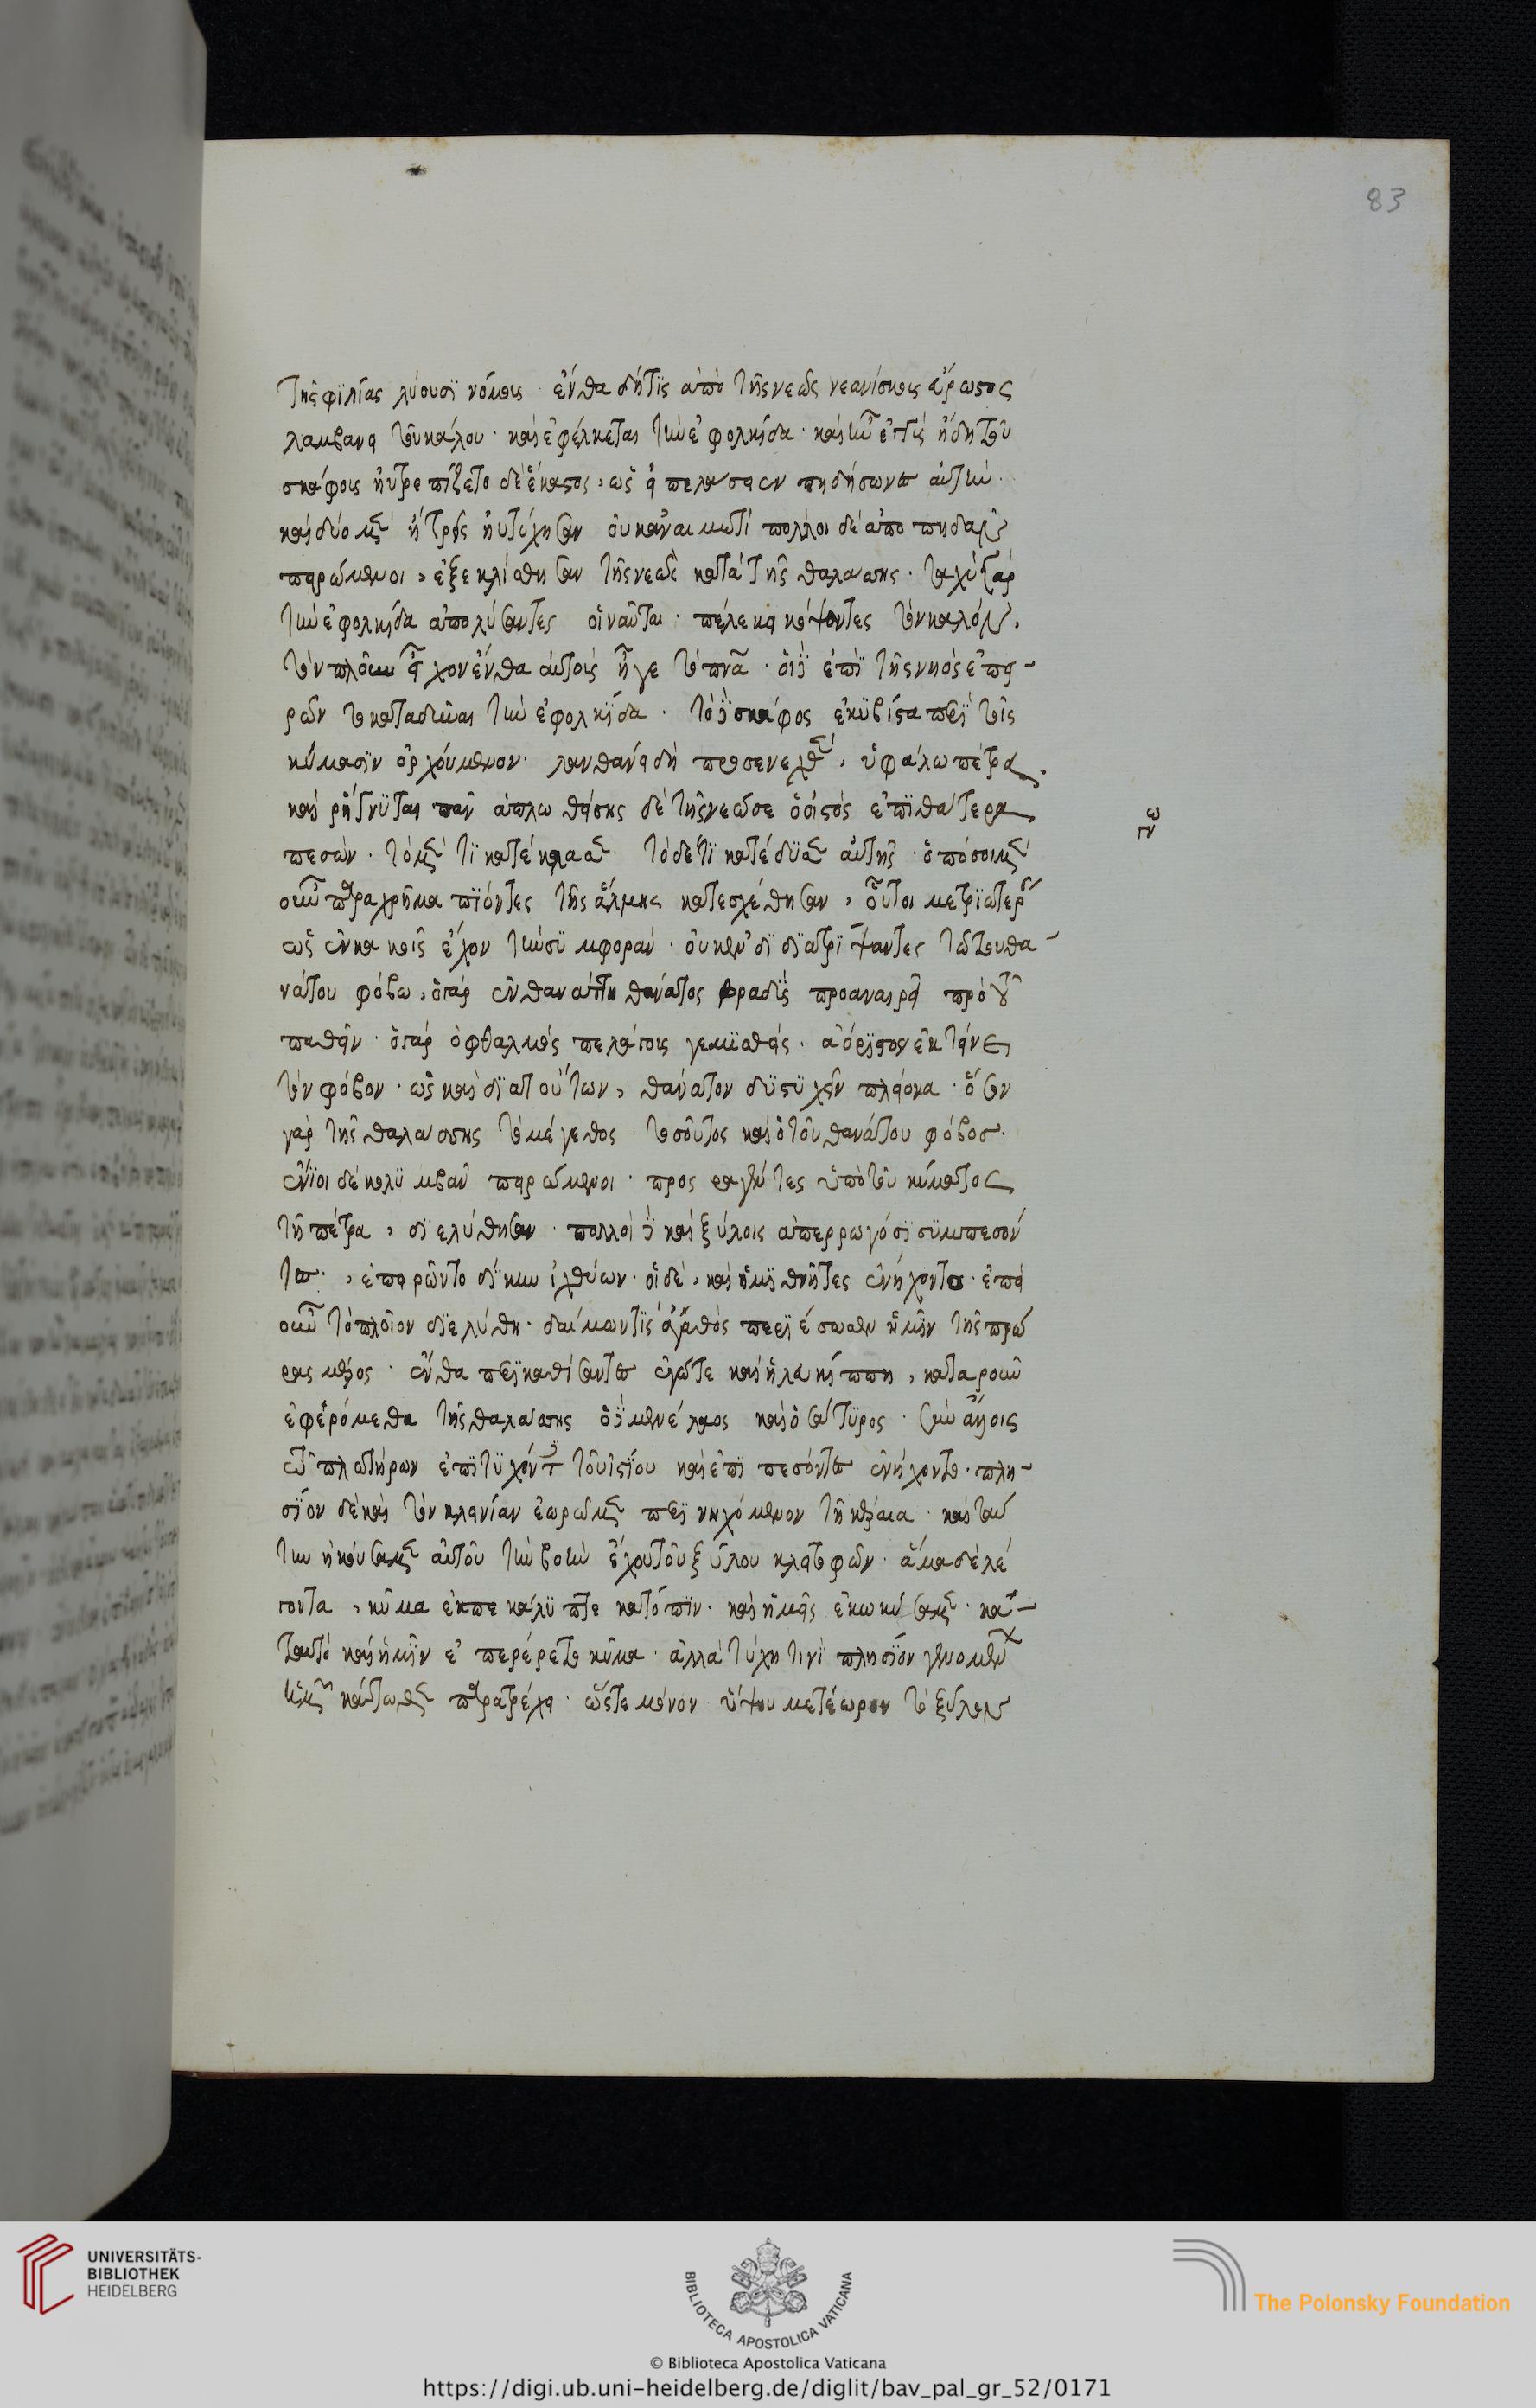 83
τῆς φϊλίας λύουσϊ νόμους · ἔνθα δήτϊς ἀπὸ τῆς νεὼς νεανίσκος εὔρωστος
λαμβάνει τοῦ κάλου · καὶ ἐφέλκεται τὴν ἐφολκίδα · καὶ ἦν ἐγγὺς ἤδη τοῦ
σκάφους ηὐτρεπίζετο δὲ ἕκαστος, ὡς εἰ πελάσειεν πηδήσων ἐς αὐτὴν ·
καὶ δύο μὲν ἢ τρεῖς ηὐτύχησαν οὐκ ἀναιμωτί πολλοὶ δὲ ἀποπηδᾶν
πειρώμενοι, ἐξεκυλίσθησαν τῆς νεὼς κατὰ τῆς θαλάσσης · ταχὺ γὰρ
τὴν ἐφολκίδα ἀπολύσαντες οἱ ναῦται · πελέκει κόψαντες τὸν κάλον,
τὸν πλοῦν εἶχον ἔνθα αὐτοὺς ἦγε τὸ πνεῦμα · οἱ δὲ ἐπὶ τῆς νηὸς ἐπει-
ρῶν το καταδῦσαι τὴν ἐφολκϊδα · τὸ δὲ σκάφος ἐκϋβίστα περὶ τοῖς
κύμασϊν ὀρχούμενον · λανθάνει δὴ προσενεχθὲν, ὑφάλω πέτρα ·
καὶ ῥήγνϋται πᾶν ἀπλωθείσης δὲ τῆς νεὼς ὁ ἱστὸς ἐπὶ θάτερα
πεσὼν · τὸ μέν τι κατέκλασε · τὸ δέ τι κατέδϋσεν αὐτῆς · ὁπόσοι μὲν
οὖν παραχρῆμα πιόντες τῆς ἅλμης κατεσχέθησαν, οὗτοι μετρϊωτέραν
ὡς ἐν κακοῖς ἔσχον τὴν συμφοράν · οὐκ ἐνδιατρίψαντες τῶ τοῦ θα-
νάτου φόβω, ὁ γὰρ ἐν θαλάττη θάνατος βραδὺς προαναιρεῖ πρὸ τοῦ
παθεῖν · ὁ γὰρ ὀφθαλμὸς πελάγους γεμισθεὶς · ἀόριστον ἐκτείνει
τὸν φόβον · ὡς καὶ διὰ τούτων, θάνατον δυστυχεῖν πλείονα · ὅσον
γὰρ τῆς θαλάσσης τὸ μέγεθος · τοσοῦτος καὶ ὁ τοῦ θανάτου φόβος ·
ἔνϊοι δὲ κολϋμβᾶν πειρώμενοι · προσραγέντες ὑπὸ τοῦ κύματος
τῆ πέτρα, διελύθησαν · πολλοὶ δὲ καὶ ξύλοις ἀπερρωγόσϊ συμπεσόν
τες, ἐπειρῶντο δίκην ἰχθύων · οἱ δὲ, καὶ ἡμϊθνῆτες ἐνήχοντο · ἐπεὶ
οὖν τὸ πλοῖον διελύθη · δαίμων τὶς ἀγαθὸς περιέσωσεν ἡμῖν τῆς πρώ
ρας μέρος · ἔνθα περικαθίσαντες ἐγώτε καὶ ἡ λευκίππη, κατὰ ροῦν
ἐφερόμεθα τῆς θαλάσσης ὁ δὲ μενέλαος καὶ ὁ σάτϋρος · σὺν ἄλλοις
τῶν πλωτήρων ἐπϊτϋχόντες τοῦ ἱστίου καὶ ἐπιπεσόντες ἐνήχοντο · πλη-
σίον δὲ καὶ τὸν κλεινίαν ἑωρῶμεν περινηχόμενον τῆ κεραία · καὶ ταύ
την ἠκούσαμεν αὐτοῦ τὴν βοὴν ἔχου τοῦ ξύλου κλειτοφῶν · ἅμα δὲ λέ
γοντα, κῦμα ἐπεκάλυπτε κατόπϊν · καὶ ἡμεῖς ἐκωκύσαμεν · κα-
ταυτὸ καὶ ἡμῖν ἐπεφέρετο κῦμα · ἀλλὰ τύχη τινὶ πλησίον γενόμενον
ἡμῶν κάτωθεν παρατρέχει · ὥστε μόνον ὑψου μετέωρον τὸ ξύλον
γνω
UNIVERSITÄTS-
BIBLIOTHEK
HEIDELBERG
BIBLIOTECA APOSTOLICA VATICANA
The Polonsky Foundation
© Biblioteca Apostolica Vaticana
https://digi.ub.uni-heidelberg.de/diglit/bav_pal_gr_52/0171